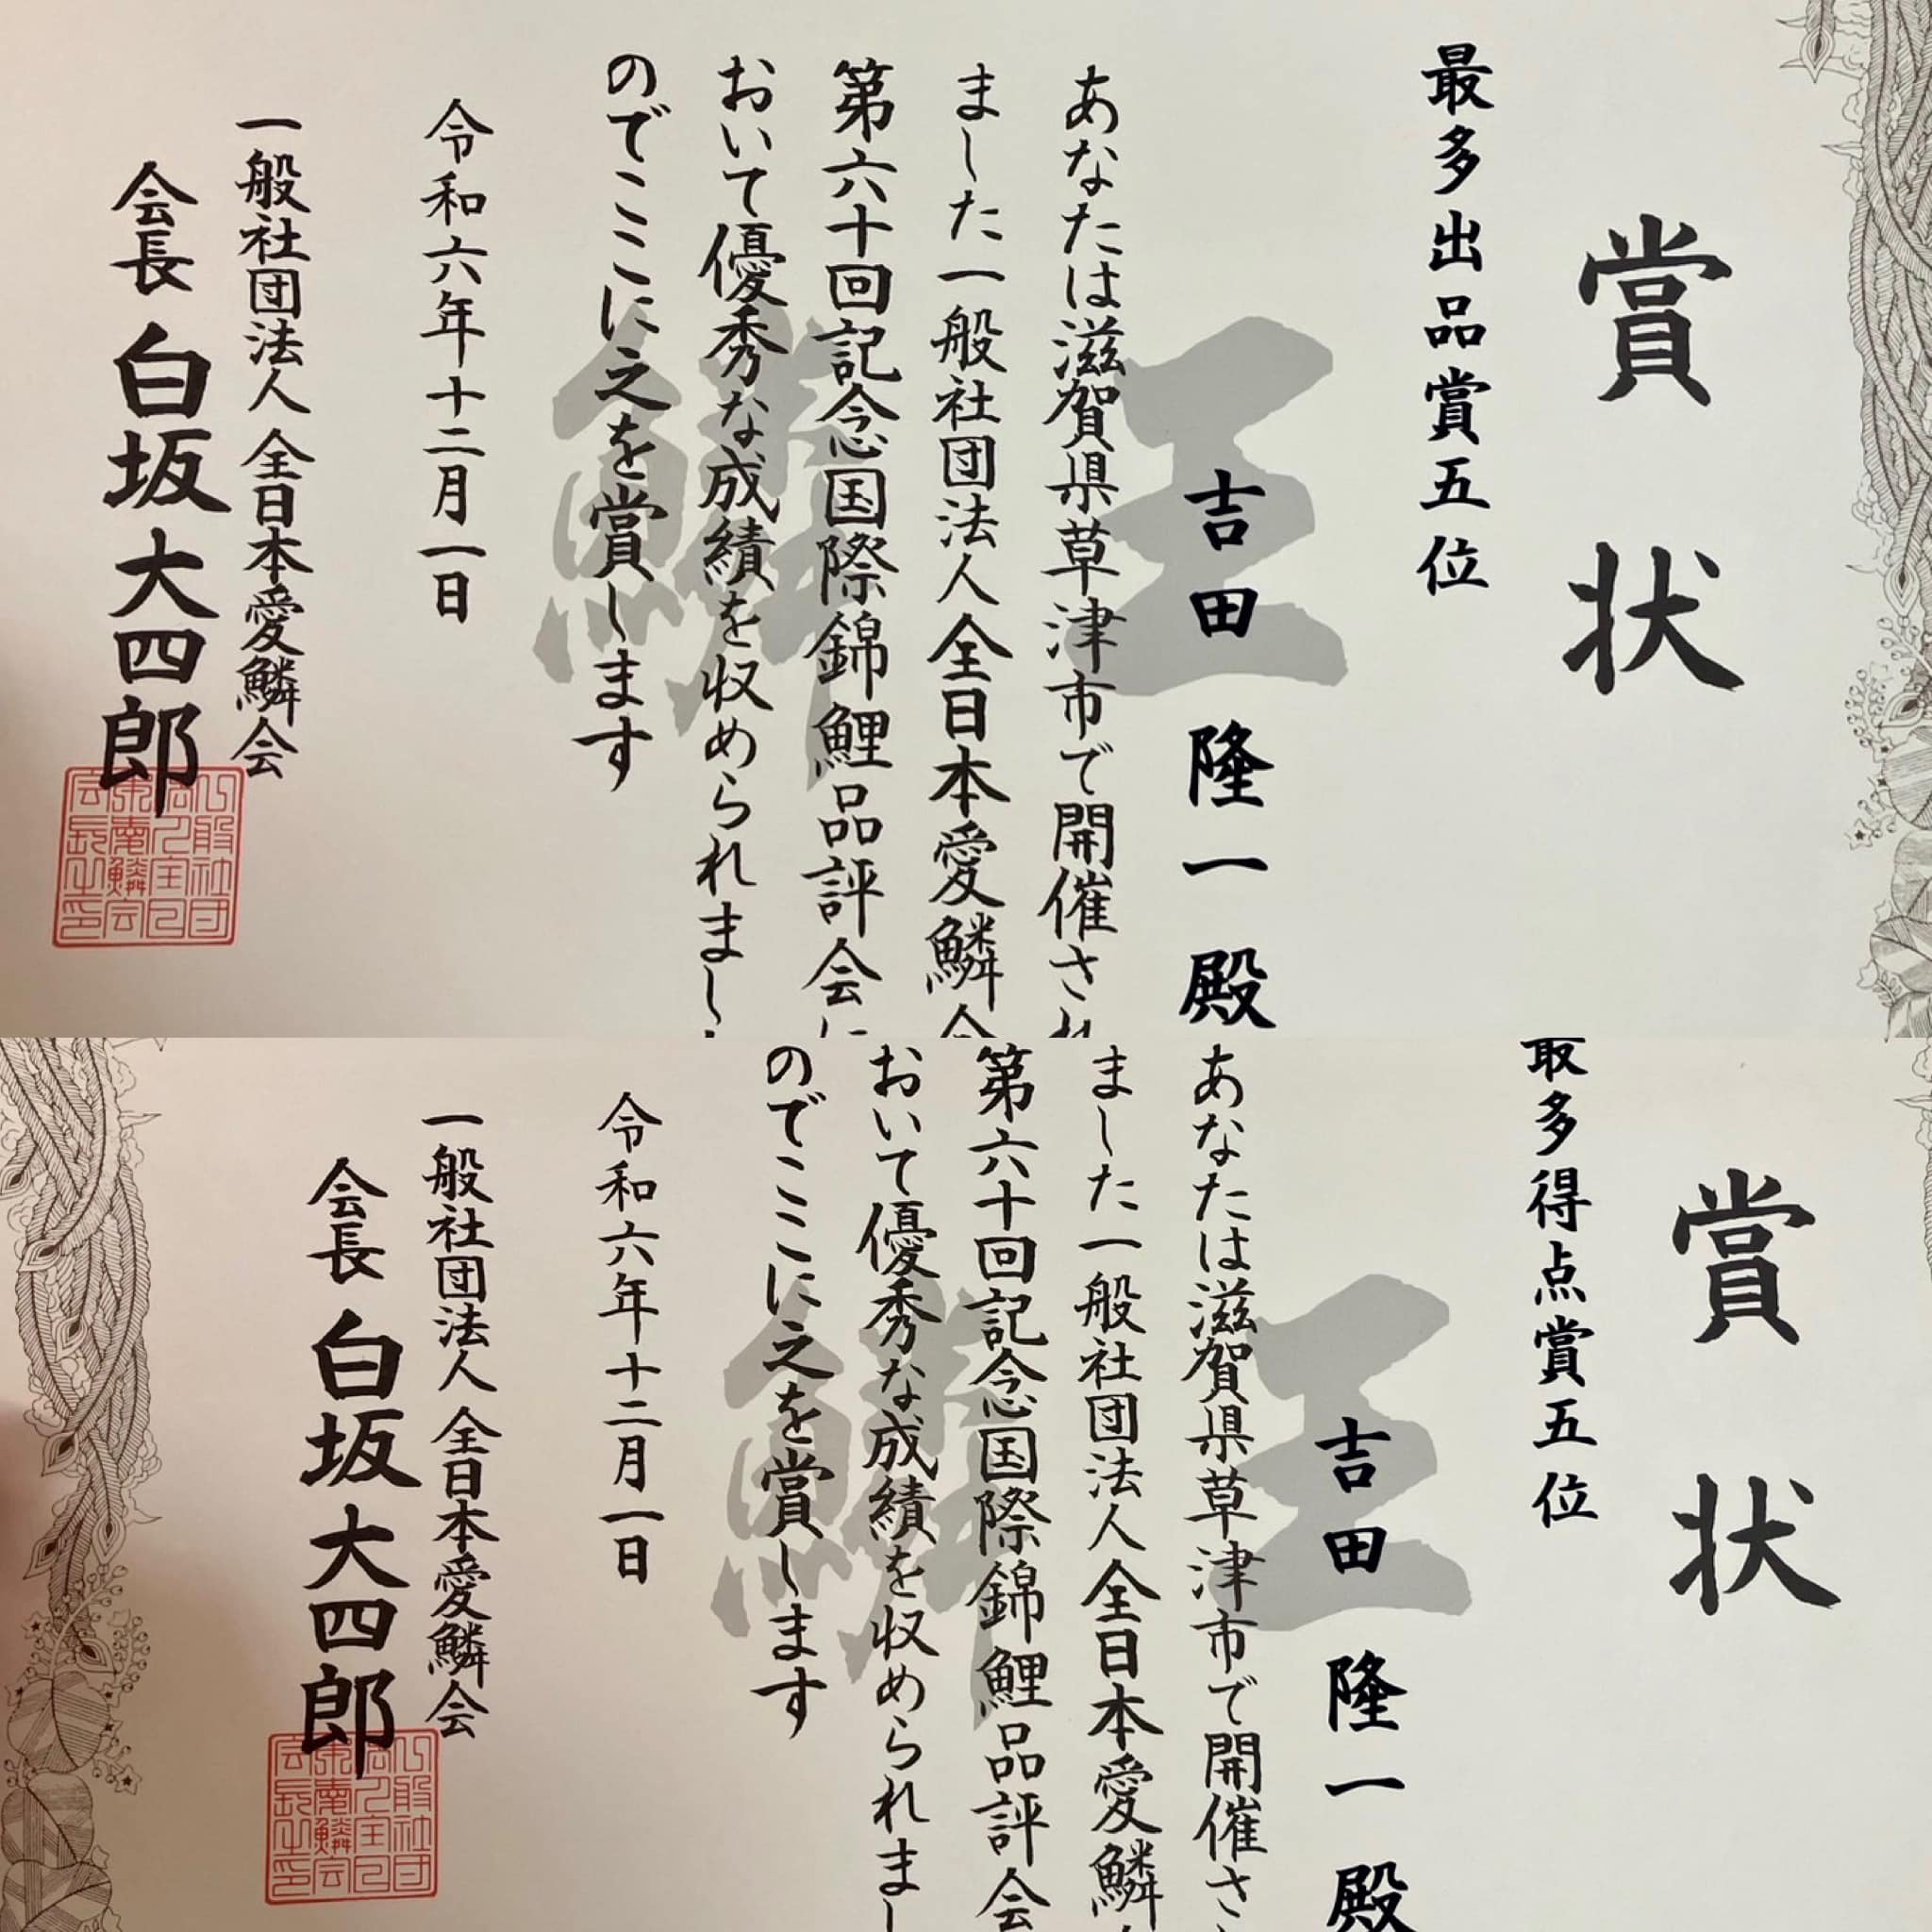 賞状
最多出品賞五位
吉田隆一殿
あなたは滋賀県草津市で開催され
ました一般社団法人全日本愛鱗会
第六十回記念国際錦鯉品評会に
おいて優秀な成績を収められまし
のでここに之を賞します
令和六年十二月一日
一般社団法人 全日本愛鱗会
会長 白坂大四郎
王
鱗
賞状
最多得点賞五位
吉田隆一殿
あなたは滋賀県草津市で開催さ
ました一般社団法人全日本愛鱗
第六十回記念国際錦鯉品評会
おいて優秀な成績を収められまし
のでここに之を賞します
令和六年十二月一日
一般社団法人 全日本愛鱗会
会長 白坂大四郎
王
鱗